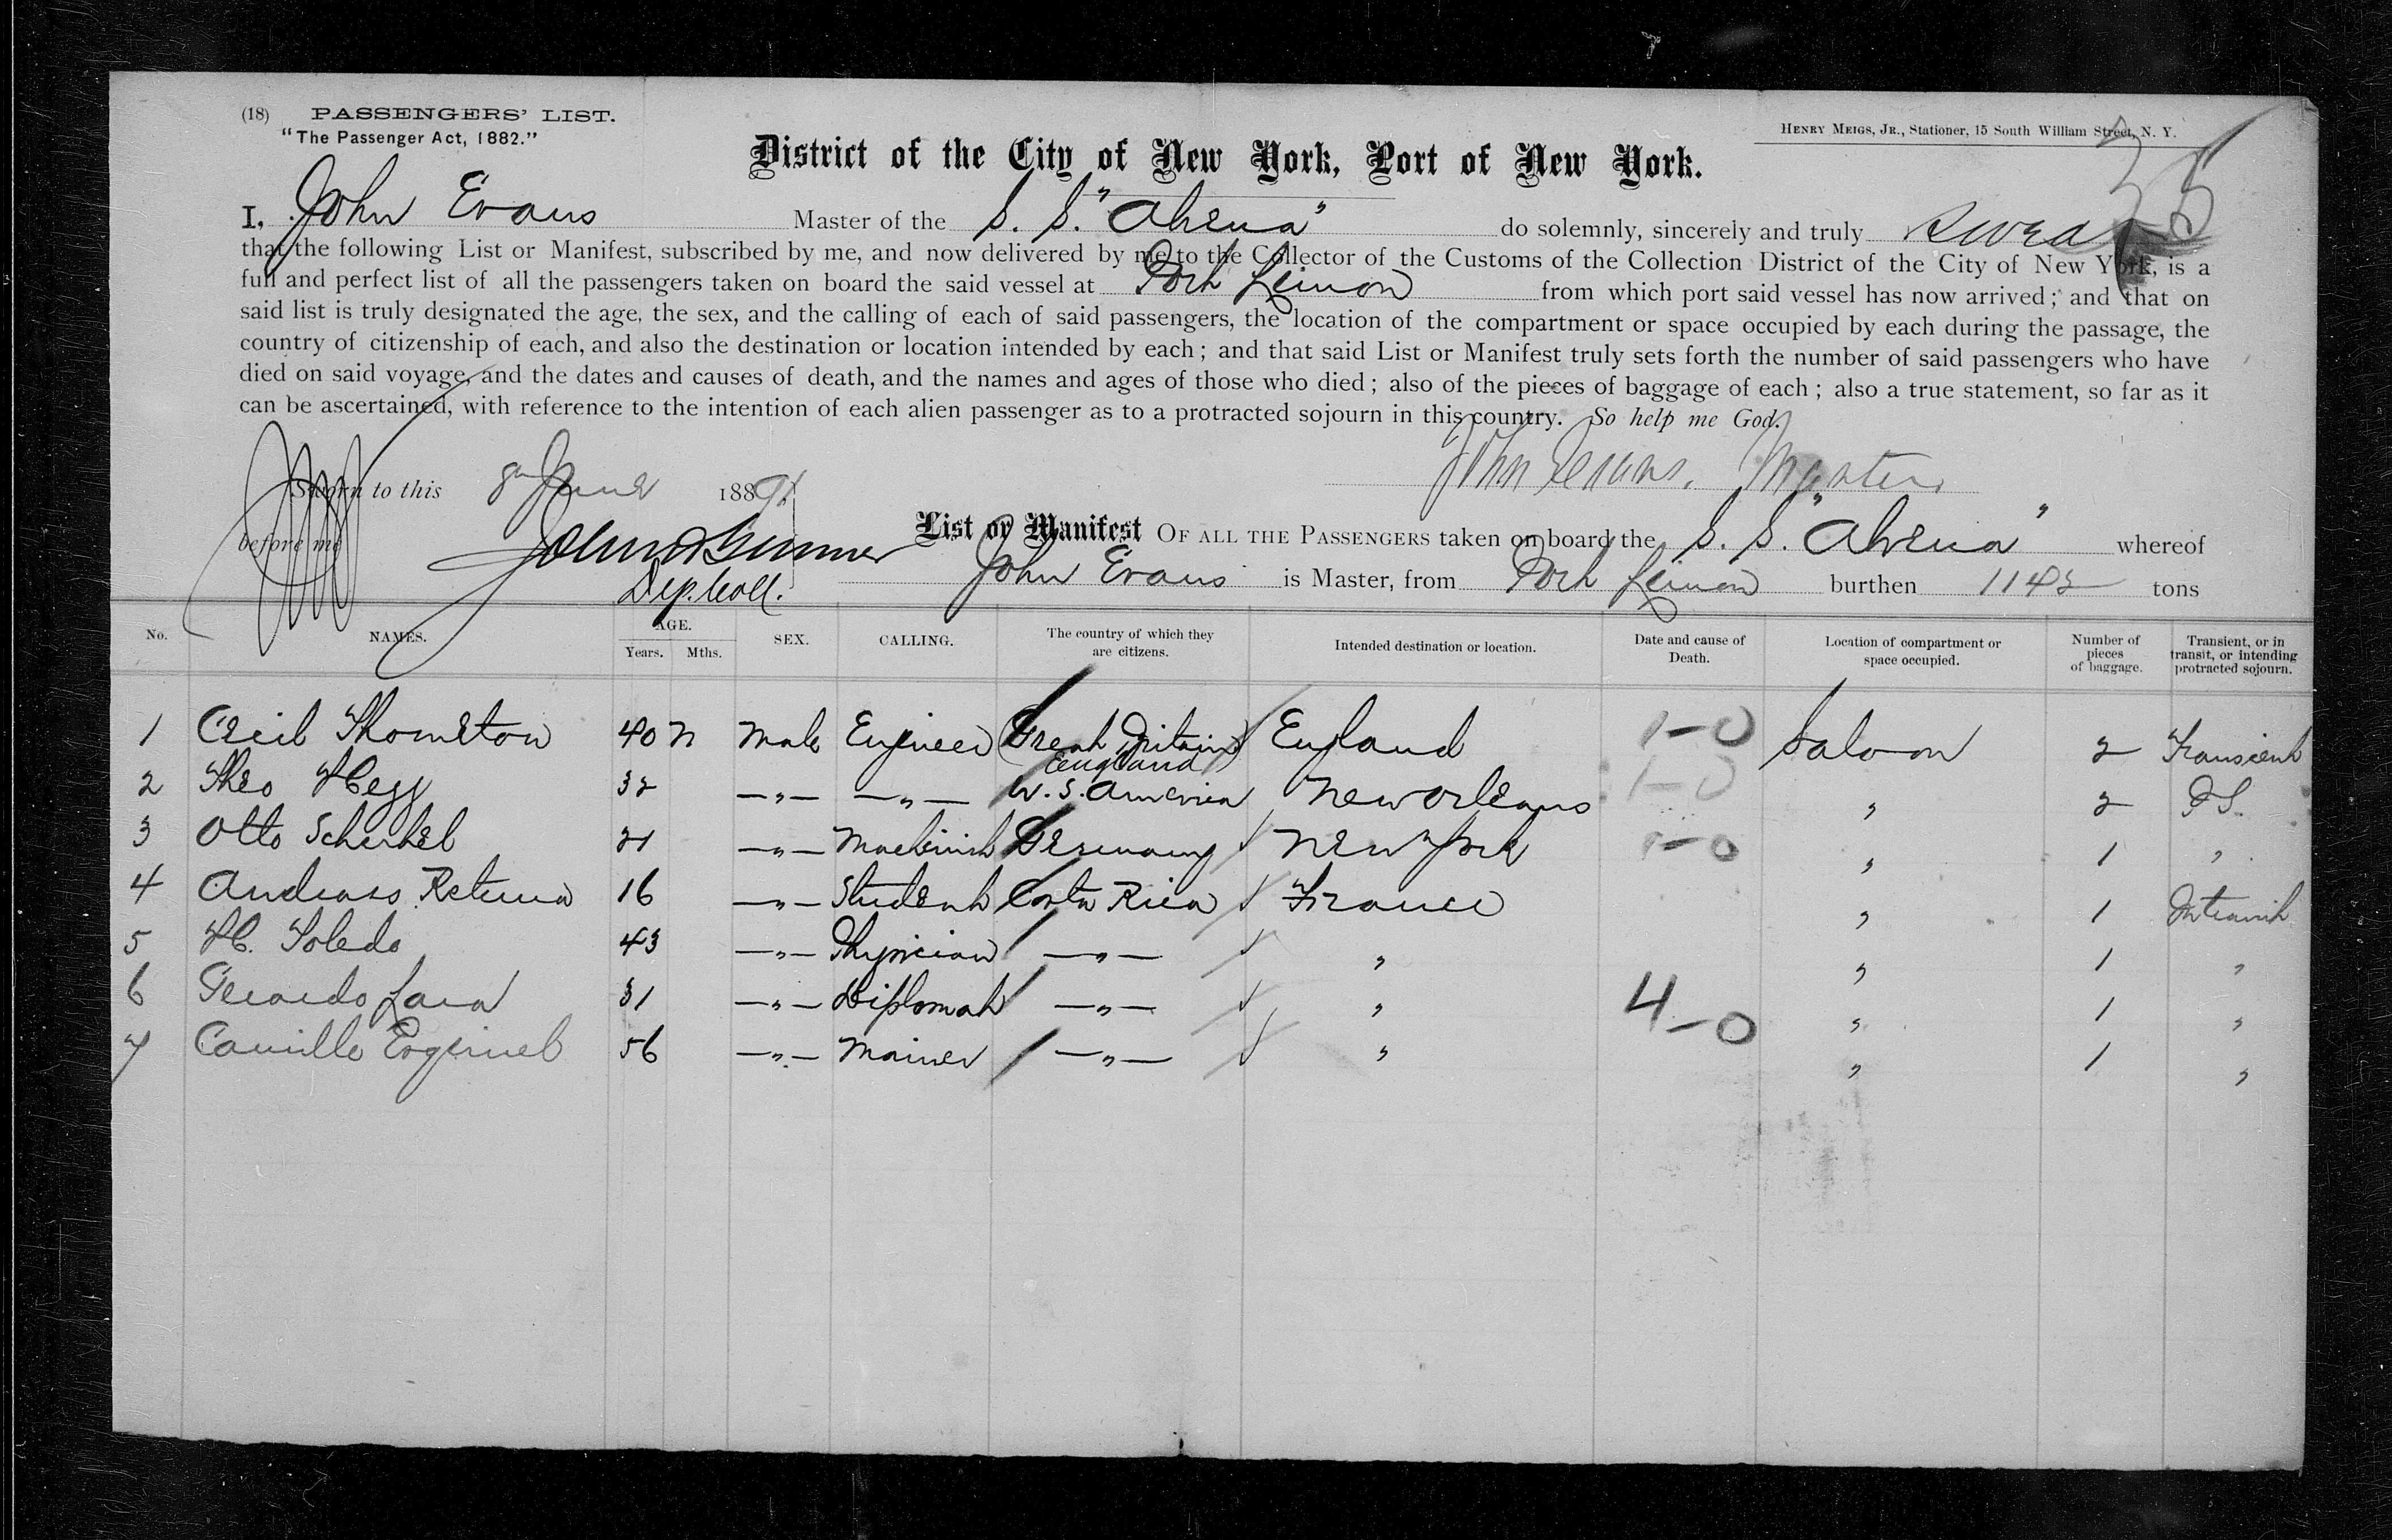 (18) PASSENGERS' LIST.
"The Passenger Act, 1882."
HENRY MEIGS, JR., Stationer, 15 South William Street, N. Y.
35
District of the City of New York, Port of New York.
I, John Evans Master of the S. S. "Athena" do solemnly, sincerely and truly swear
that the following List or Manifest, subscribed by me, and now delivered by me to the Collector of the Customs of the Collection District of the City of New York, is a
full and perfect list of all the passengers taken on board the said vessel at Port Limon from which port said vessel has now arrived; and that on
said list is truly designated the age, the sex, and the calling of each of said passengers, the location of the compartment or space occupied by each during the passage, the
country of citizenship of each, and also the destination or location intended by each; and that said List or Manifest truly sets forth the number of said passengers who have
died on said voyage, and the dates and causes of death, and the names and ages of those who died; also of the pieces of baggage of each; also a true statement, so far as it
can be ascertained, with reference to the intention of each alien passenger as to a protracted sojourn in this country. So help me God.
John Evans. Master
Sworn to this 8th June 1891
before me
Dep. Coll.
List or Manifest OF ALL THE PASSENGERS taken on board the S. S. "Athena" whereof
John Evans is Master, from Port Limon burthen 1142 tons
No. NAMES. AGE. Years. Mths. SEX. CALLING. The country of which they are citizens. Intended destination or location. Date and cause of Death. Location of compartment or space occupied. Number of pieces of baggage. Transient, or in transit, or intending protracted sojourn.
1 Cecil Thornston 40 Male Engineer Great Britain England England 1-0 Saloon 2 Transient
2 Theo Hegg 32 —"— —"— U. S. America New Orleans 1-0 " 2 Do.
3 Otto 21 —"— Machinist Germany New York 1-0 " 1 "
4 Andreas 16 —"— Student Costa Rica France " 1 In transit
5 H. Toledo 43 —"— Physician —"— " " 1 "
6 Gerardo Lara 31 —"— Diplomat —"— " 4-0 " 1 "
7 Camille 56 —"— —"— " " 1 "